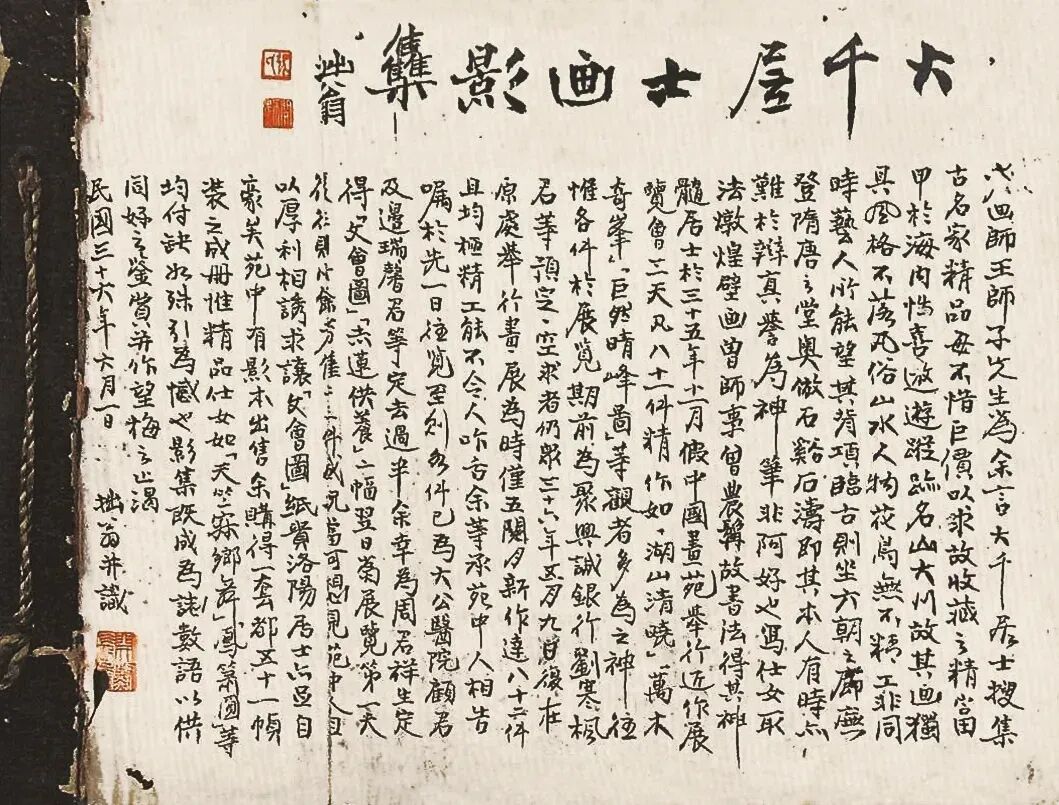 大千居士画影雧
拙翁
画師王師子先生為余言大千居士搜集
古名家精品毋不惜巨價以求故收藏之精當
甲於海内性喜遨遊蹤跡名山大川故其画獨
具風格不落凡俗山水人物花鳥無不精工非同
時藝人所能望其背項臨古則坐六朝之廊廡
登隋唐之堂奥倣石谿石濤即其本人有時亦
難於辯真譽為神筆非阿好也寫仕女取
法燉煌壁画曾師事曾農髯故書法得其神
髓居士於三十五年十一月假中國畫苑舉行近作展
覽會三天凡八十一件精作如「湖山清曉」「萬木
奇峯」「巨然晴峰圖」等觀者多為之神往
惟各件於展览期前為聚興誠銀行劉寒楓
君等預定一空求者仍眾三十六年五月九日復在
原處舉行畫展為時僅五閱月新作達八十二件
且均極精工能不令人咋舌余等承苑中人相告
嘱於先一日往览至則多件已為大公醫院顧君
及邊瑞馨君等定去過半余幸為周君祥生定
得「文會圖」「赤蓮供養」二幅翌日展覽第一天
則餘者僅二三件盛况當可想見苑中人
以厚利相誘求讓「文會圖」紙貴洛陽居士亦足自
豪矣苑中有影本出售余購得一套都五十一幀
装之成册惟精品仕女如「天竺鄉舞」「鳳簫圖」等
均付缺如殊引為憾也影集既成為誌數語以供
同好之鉴赏并作望梅之止渴
民國三十六年六月一日 拙翁并識